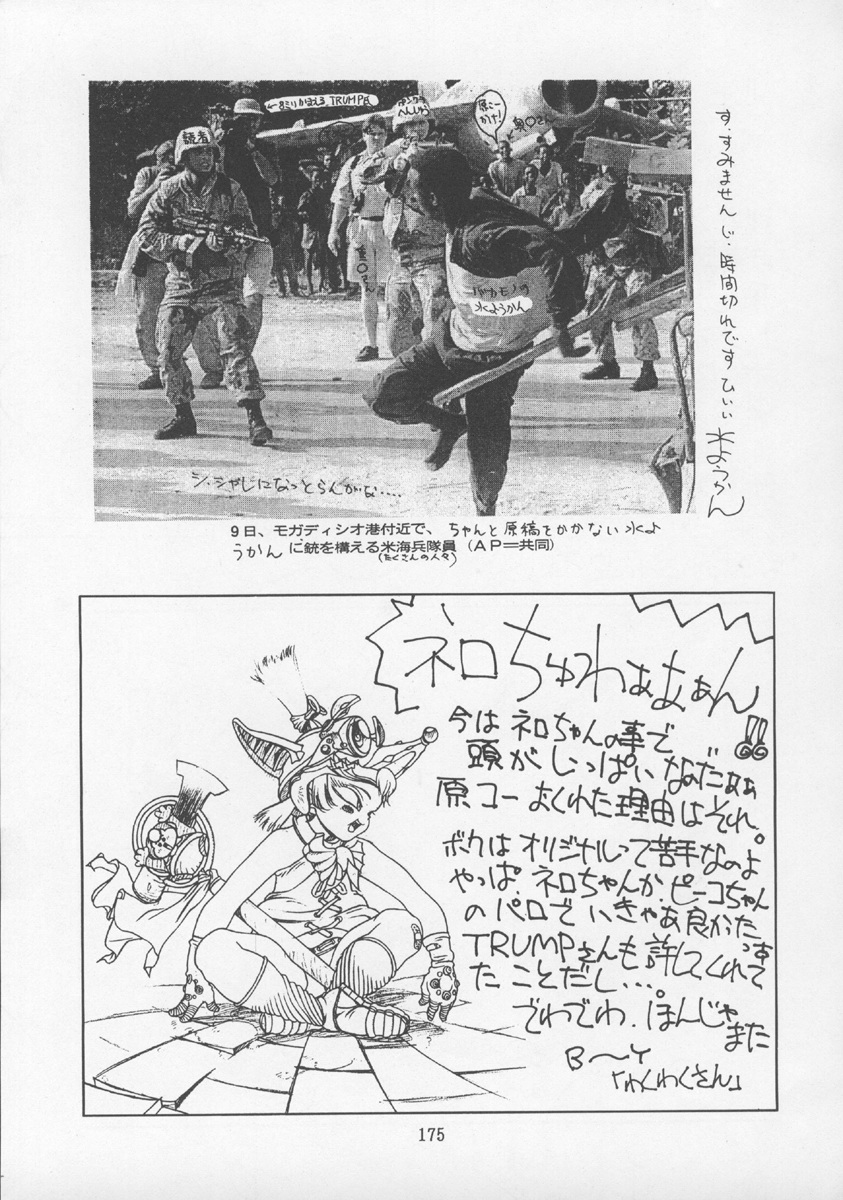 ←8ミリかまえる TRUMP氏
読者
へんしゅう
原こー
かけ!
奥○さん
バカモノの
水ようかん
シ、シャレになっとらんがな....
す、すみません じ、時間切れです ひぃぃ 水ようかん
9日、モガディシオ港付近で、ちゃんと原稿をかかない水よ
うかんに銃を構える米海兵隊員(AP=共同)
(たくさんの人々)
ネロちゅわぁあぁん!!
今はネロちゃんの事で
頭がいっぱいなのだぁぁ
原コーよくれた理由はそれ。
ボクはオリジナルって苦手なのよ
やっぱ、ネロちゃんか、ピーコちゃん
のパロでいきゃあ良かったっす
TRUMPさんも許してくれて
たことだし...。
でわでわ、ぽんじゃ
また
B〜Y
「わくわくさん」
175